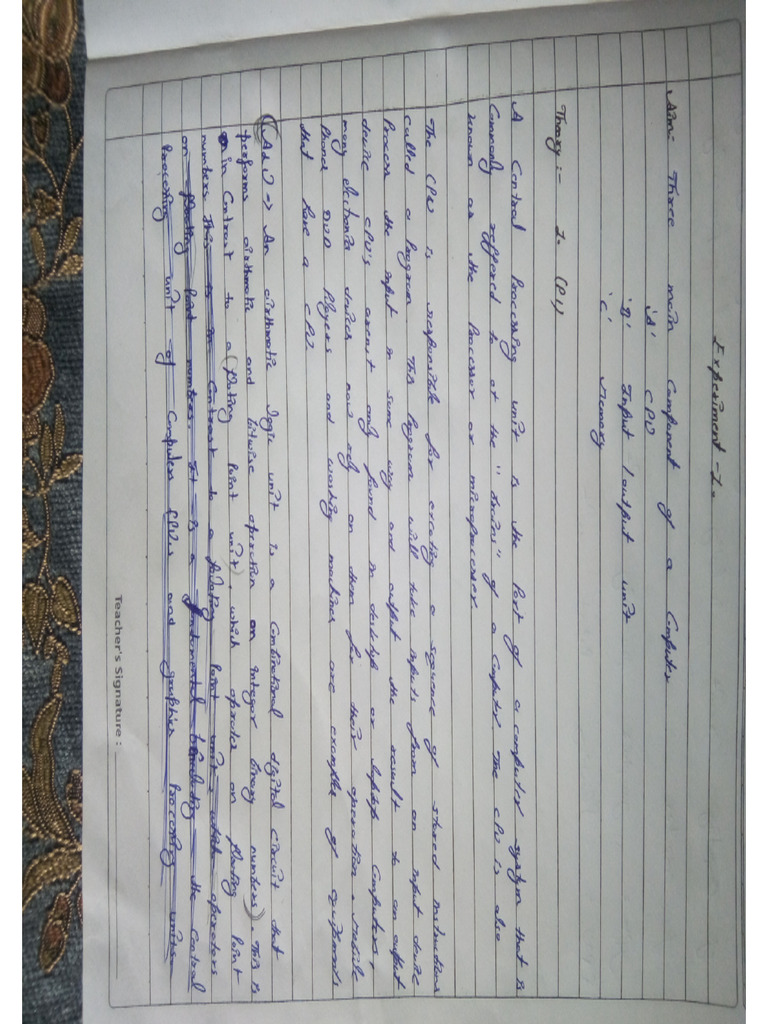 Experiment - 1.
Aim: Three main Component of a Computer
'A' CPU
'B' Input / output unit
'C' Memory
Theory :- 1. CPU
A Central Processing unit is the Part of a computer system that is
Commonly reffered to at the " " of a Computer. The CPU is also
known as the Processor or microprocessor.
The CPU is responsible for a sequence of stored instructions
called a Program. This Program will take inputs from an input device
Process the input in some way and output the result to an output
device CPU's only found in desktop or laptop Computers,
many electronic devices now on them for their operation. Mobile
Phones DVD Players and machines are examples of
that have a CPU
(ALU → An airthmatic logic unit is a Combinational digital circuit that
performs airthmatic and bitwise operation on integer binary numbers). This is
in Contrast to a (floating Point unit), which operates on floating Point
numbers. This is in Contrast to a floating Point unit, which operators
on floating Point numbers. It is a the Central
Processing unit of Computer CPUs and graphics Processing units
Teacher's Signature :